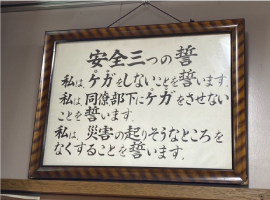 安全三つの誓
私は、ケガをしないことを誓います。
私は、同僚部下にケガをさせない
ことを誓います。
私は、災害の起りそうなところを
なくすることを誓います。